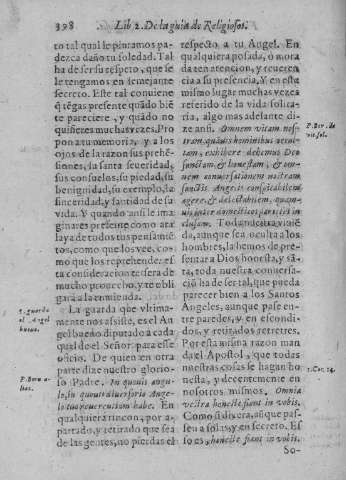 398 Lib 2. De la guia de Religiosos.
to tal qual le pintamos pa-
dezca daño tu soledad. Tal
ha de ser su respeto, que se
le tengamos en semejante
secreto. Este tal conuiene
q̃ tẽgas presente quãdo biẽ
te pareciere, y quãdo no
quisieres muchas vezes. Pro
pon a tu memoria, y a los
ojos de la razon sus prehẽ-
siones, su santa seueridad,
sus consuelos, su piedad, su
benignidad, su exemplo, la
sinceridad, y santidad de su
vida. Y quando ansi le ima
ginares presente como ata
laya de todos tus pensamiẽ-
tos, como que los vee, co-
mo que los reprehende: es
ta consideracion te sera de
mucho prouecho, y te obli
gará a la emienda.
La guarda que vltima-
mente nos assiste, es el An
gel bueno, diputado a cada
qual de el Señor: para esse
oficio. De quien en otra
parte dize nuestro glorio-
so Padre. In quouis angu-
lo, in quouis diuersorio Ange-
lo tuo reuerentiam habe. En
qualquiera rincon, por a-
partado, y retirado que sea
de las gentes, no pierdas el
5. guarda
el Angel
bueno.
P. Bern.
respecto a tu Angel. En
qualquiera posada, ò mora
da ten atencion, y reueren
cia a su presencia. Y en este
mismo lugar muchas vezes
referido de la vida solita-
ria, algo mas adelante di-
ze ansi. Omnem vitam nos-
tram, quã hominibus
exhibere debemus Deo
sanctam, & honestam, &
conuersationem nostram
sanctis Angelis conspicabilem
agere, & delectabilem,

Toda nuestra vi-
da, aunque sea oculta a los
hombres, la hemos de pre-
sentar a Dios honesta, y sã-
ta, toda nuestra conuersa-
cion ha de ser tal, que pueda
parecer bien a los Santos
Angeles, aunque passe en-
tre paredes, y en escondi-
dos, y retirados retretres.
Por esta misma razon man
da el Apostol, que todas
nuestras cosas se hagan ho
nesta, y decentemente en
nosotros mismos. Omnia
vestra honeste fiant in vobis.
Como si dixera, aũque pas-
sen a solas, y en secreto. Es
so es, honeste fiant in vobis.
P. Ber. de
vit. sol.
1. Cor. 14.
So-